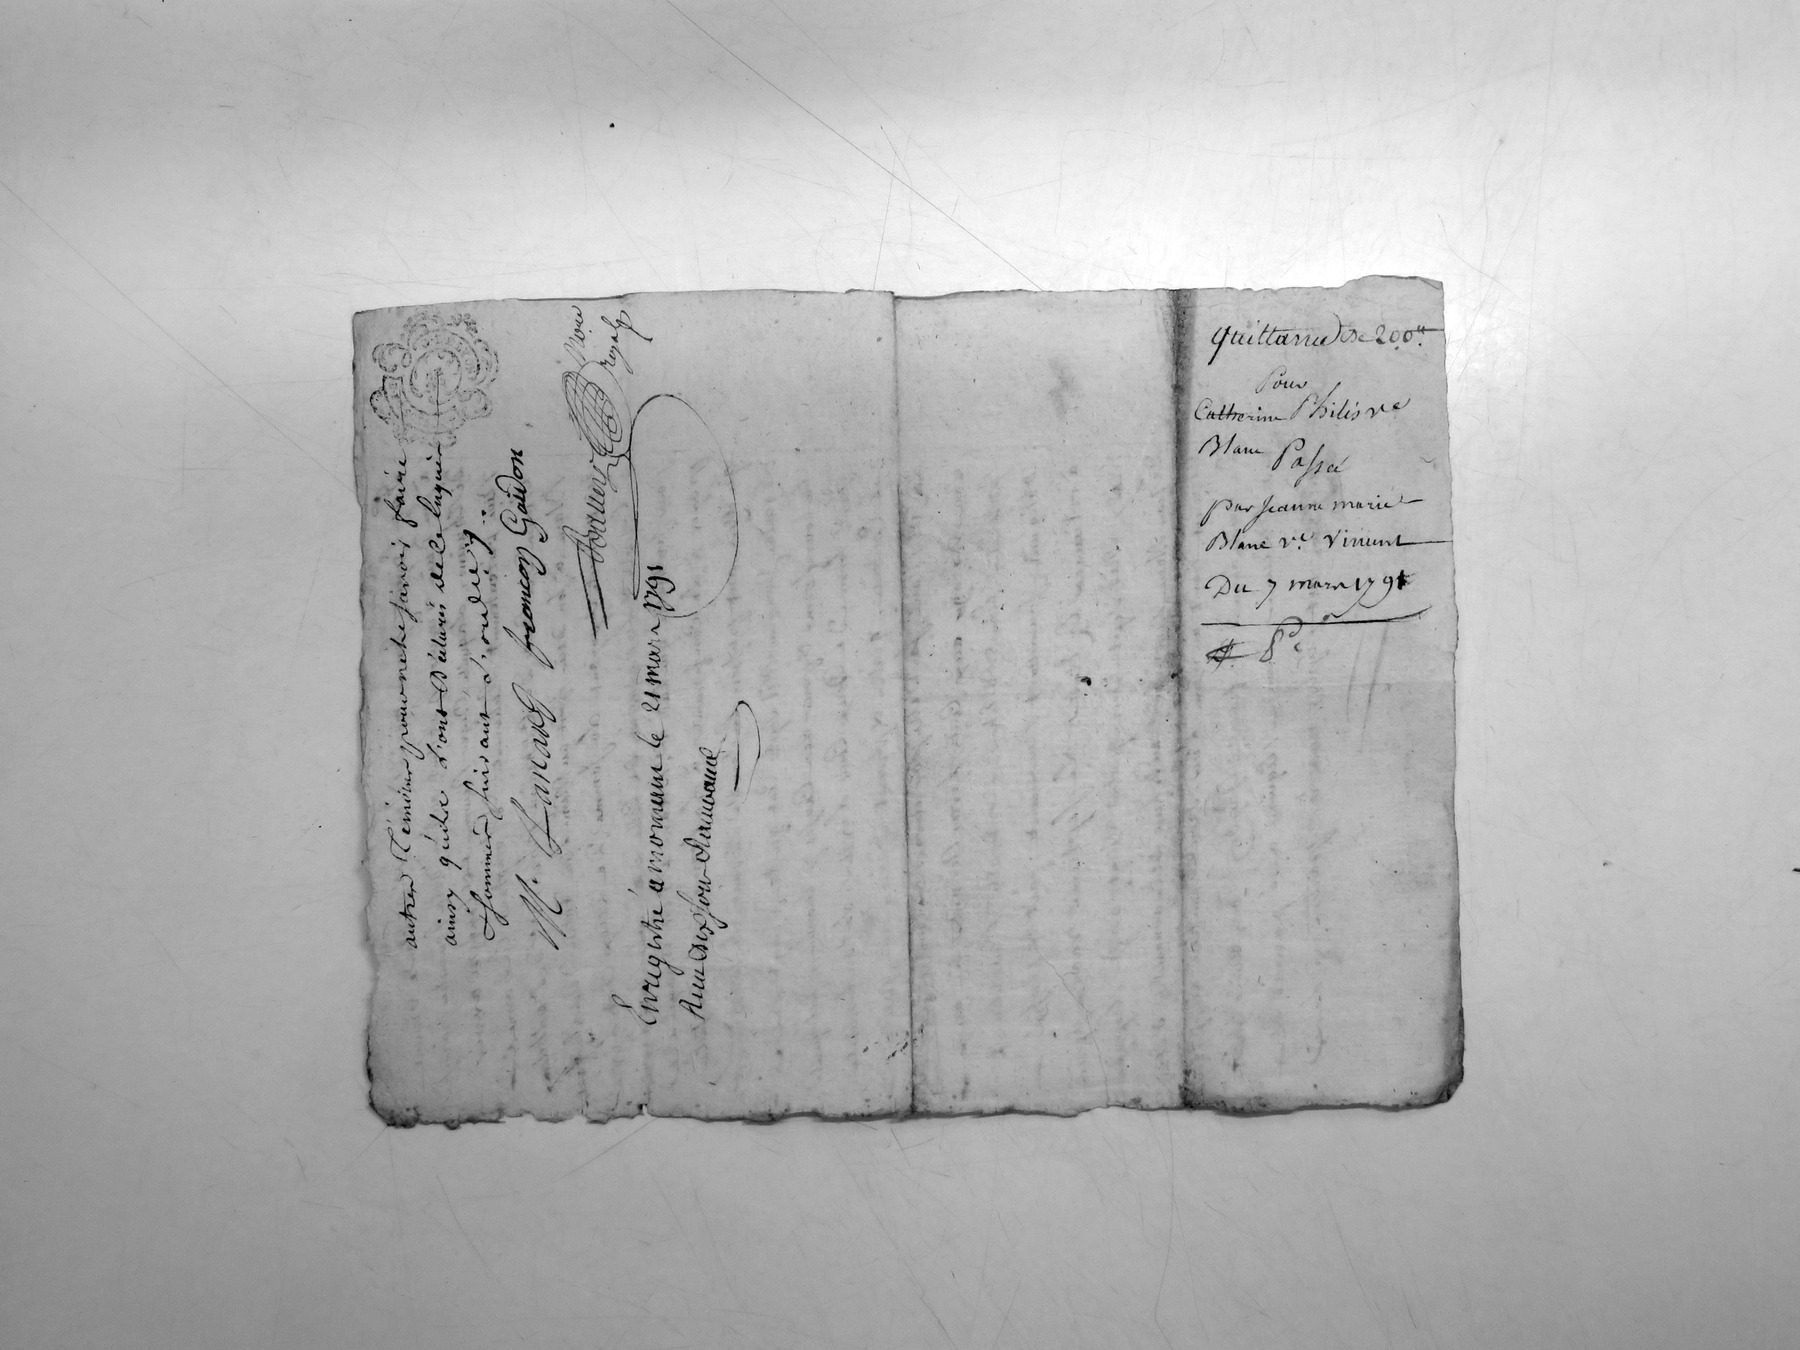 autres Témoins pour ne le savoir faire
ainsy qu'ils l'ont déclaré de ce enquis
sommés suivant l'ordce ./.
M. Lanard francoy Gaidon
Nore
royal
Enregistré a 21 mars 1791
Reçu dix sous
quittance de 200ᵗᵗ.
Pour
Catherine Philis ve
Blanc Passé
Par Jeanne marie
Blanc ve. Vincent
Du 7 mars 1791
8e